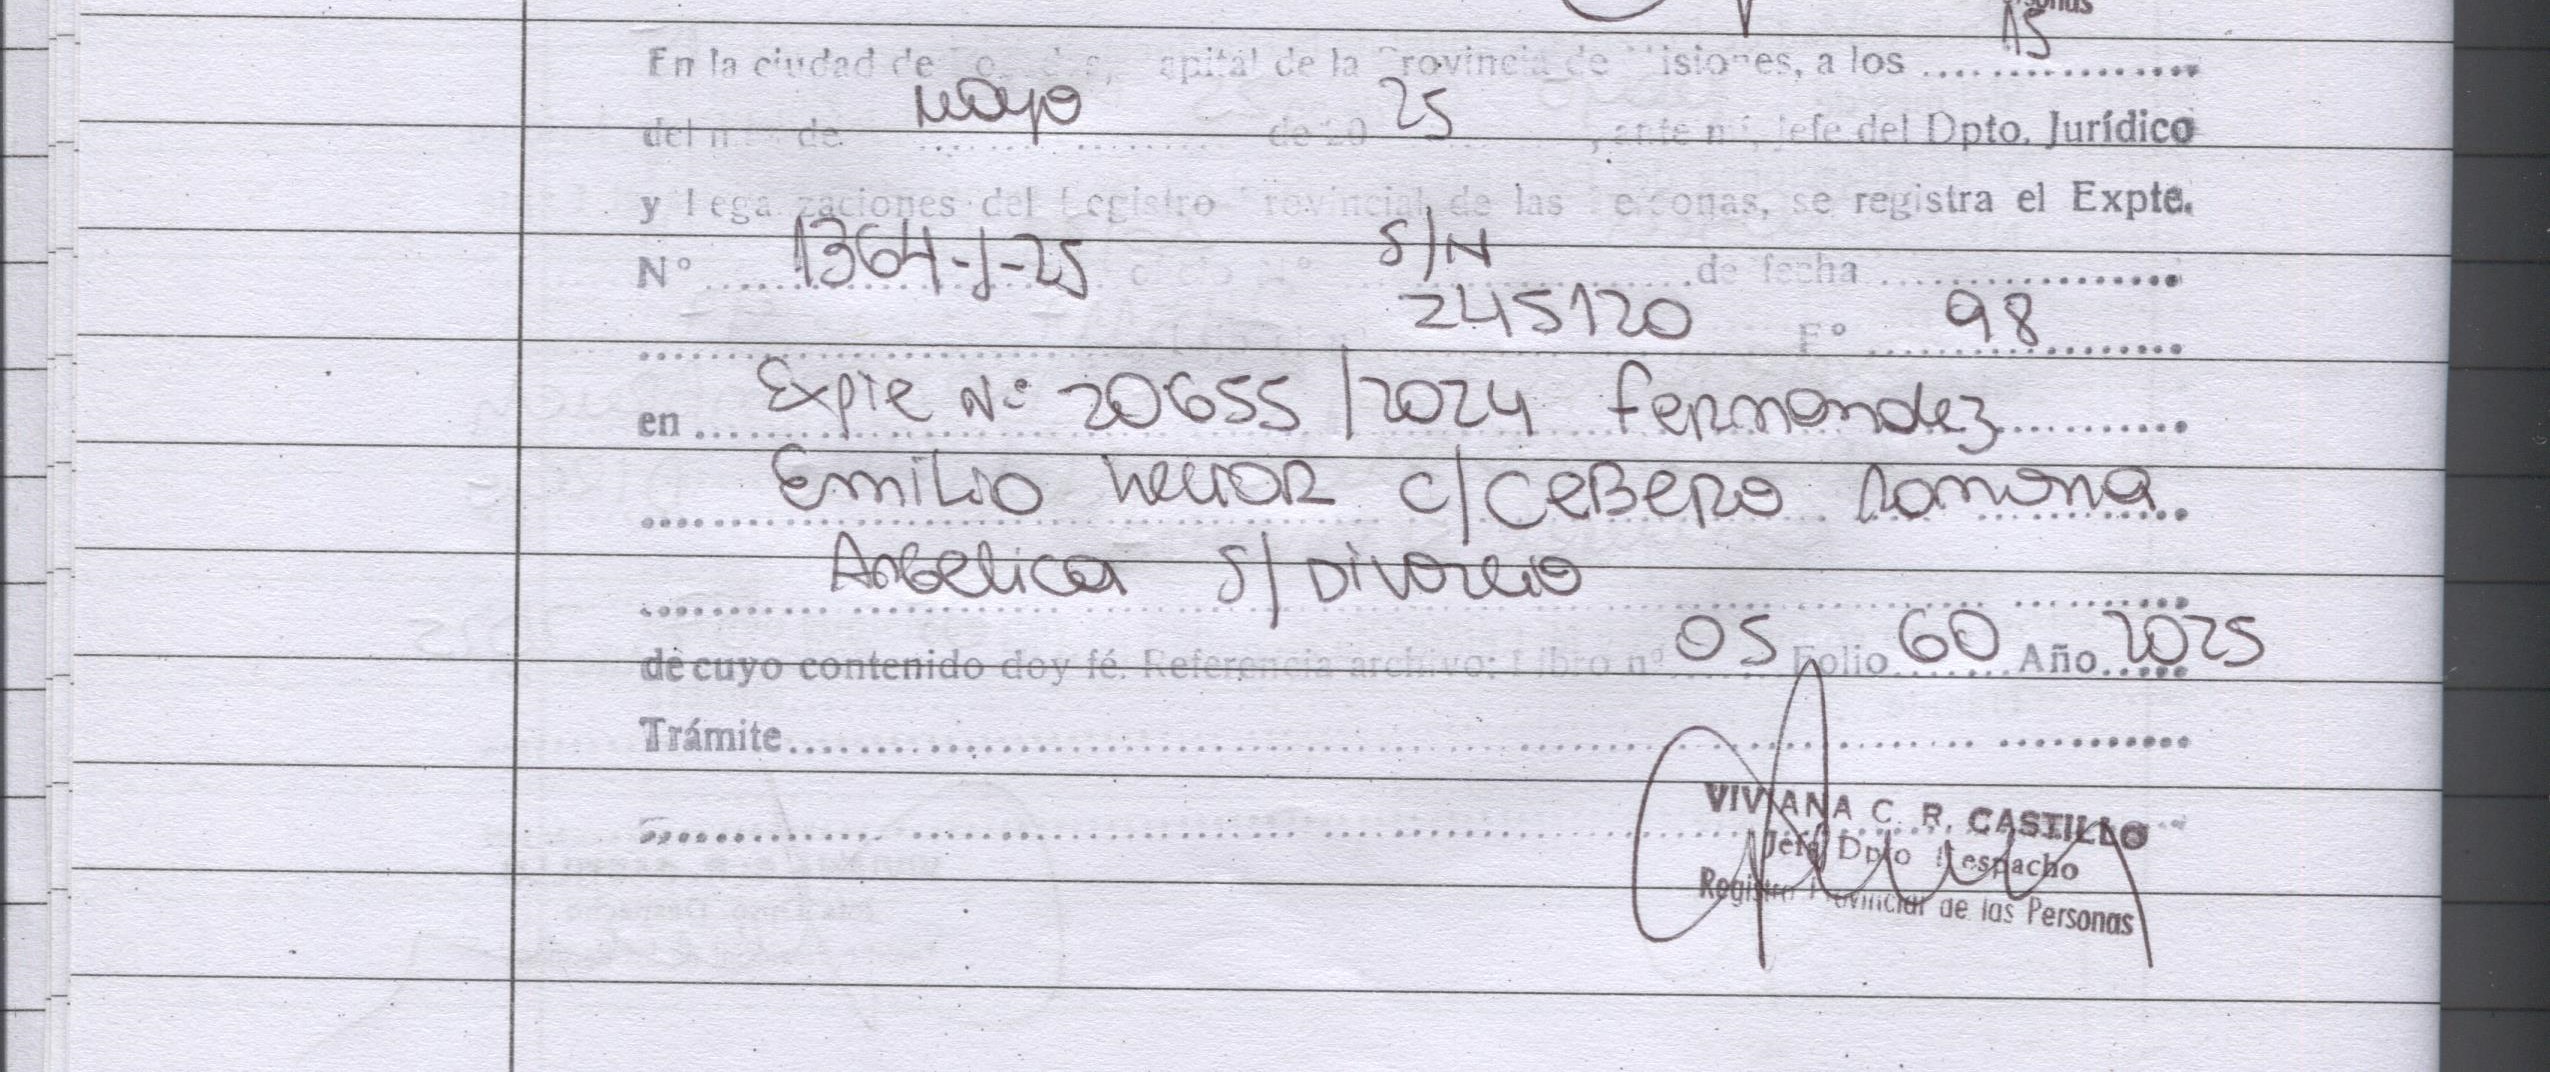 15
En la ciudad de Posadas, Capital de la Provincia de Misiones, a los ...............
del mes de mayo de 20 25, ante mí, jefe del Dpto. Jurídico
y Legalizaciones del Registro Provincial de las Personas, se registra el Expte.
N° 1364-J-25 oficio N° S/N de fecha ...............
245120 F° 98
en Expte N° 20655/2024 Fernandez
Emilio Hector c/ CeBeRo Ramona
Angelica S/ Divorcio
de cuyo contenido doy fé. Referencia archivo: Libro n° 05 Folio 60 Año 2025
Trámite...............
VIVIANA C. R. CASTILLO
Jefa Dpto Despacho
Registro Provincial de las Personas